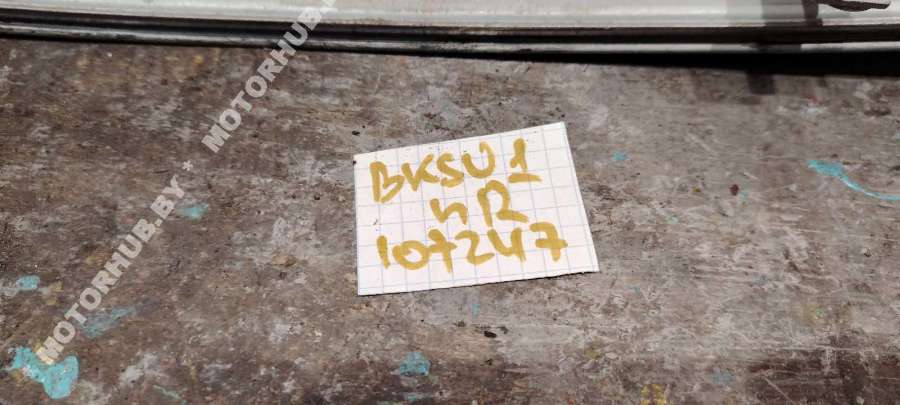 MOTORHUB.BY * MOTORHUB.
BKSU1
hR
107247